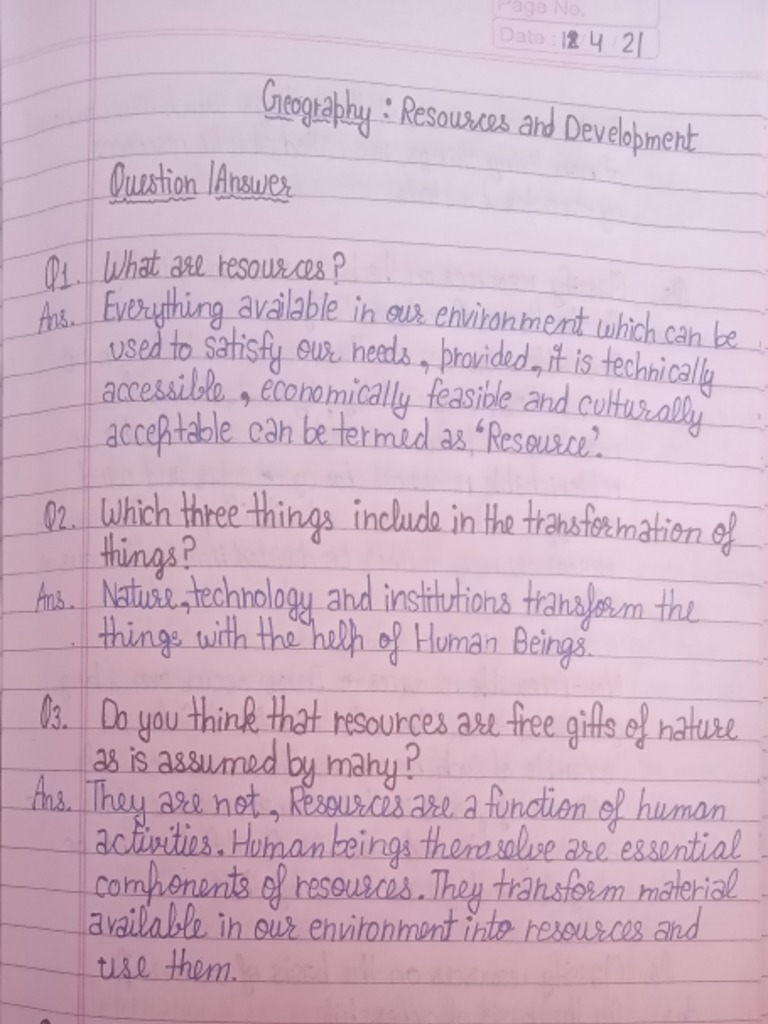 Page No.
Date : 18 4 21
Geography : Resources and Development
Question /Answer
Q1. What are resources?
Ans. Everything available in our environment which can be
used to satisfy our needs, provided, it is technically
accessible, economically feasible and culturally
acceptable can be termed as 'Resource'.
Q2. Which three things include in the transformation of
things?
Ans. Nature, technology and institutions transform the
things with the help of Human Beings.
Q3. Do you think that resources are free gifts of nature
as is assumed by many?
Ans. They are not, Resources are a function of human
activities. Human beings themselve are essential
components of resources. They transform material
available in our environment into resources and
use them.